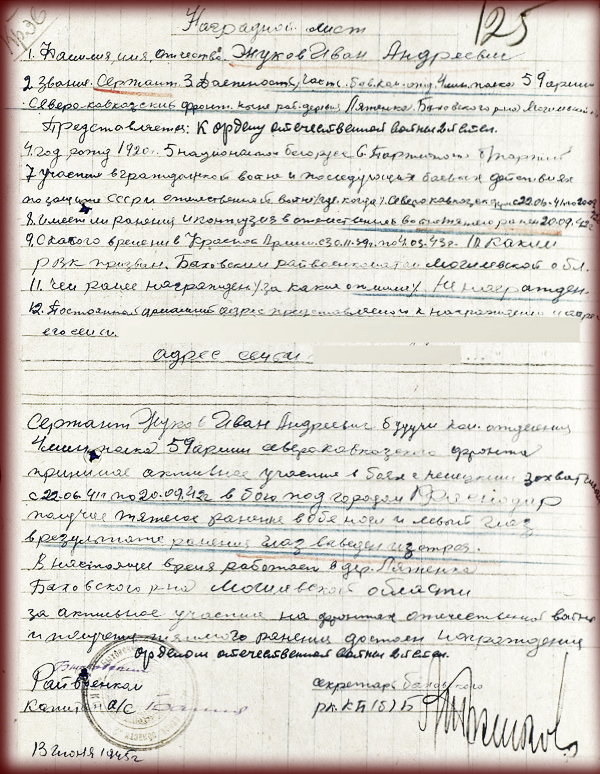 125
Наградной лист
1. Фамилия, имя, отчество. Жуков Иван Андреевич
2 Звание. Сержант 3. Должность, часть ком. отд. 4 мин. полка 59 армии
Северо-кавказский фронт. дер. Ляженка, Баховского р-на Могилевской
Представляется: К ордену отечественной войны II степ.
4. год рожд 1920г. 5 национальность белорус 6. Партийность
7 участие в гражданской войне и последующих боевых действиях
по защите СССР и отечественной войне (где, когда) Северо Кавказский фр. с 22.06-41 по 20.09.42г
8. имеет ли ранения и контузии в отечественной войне тяжело ранен 20.09.42г
9. С какого времени в Красной Армии с 30.11.39г по 4.03.43г. 10. Каким
РВК призван. Баховским райвоенкоматом Могилевской обл.
11. чем ранее награжден (за какие отличия) Не награжден.
12. Постоянный домашний адрес представляемого к награждению и адрес
его семьи.
адрес семьи
Сержант Жуков Иван Андреевич будучи ком. отделения
4 мин. полка 59 армии северо-кавказского фронта
принимал активное участие в боях с немецкими захватчиками
с 22.06 41г по 20.09.42г в бою под городом Краснодар
получил тяжелое ранение в обе ноги и левый глаз
в результате ранения глаз выведен из строя.
В настоящее время работает в дер. Ляженка
Баховского р-на Могилевской области
за активное участие на фронтах отечественной войны
и получении тяжелого ранения достоин награждения
орденом отечественной войны II степ.
Райвоенком
секретарь баховского
капитан а/с
рк КП(б)Б
13 июня 1945г